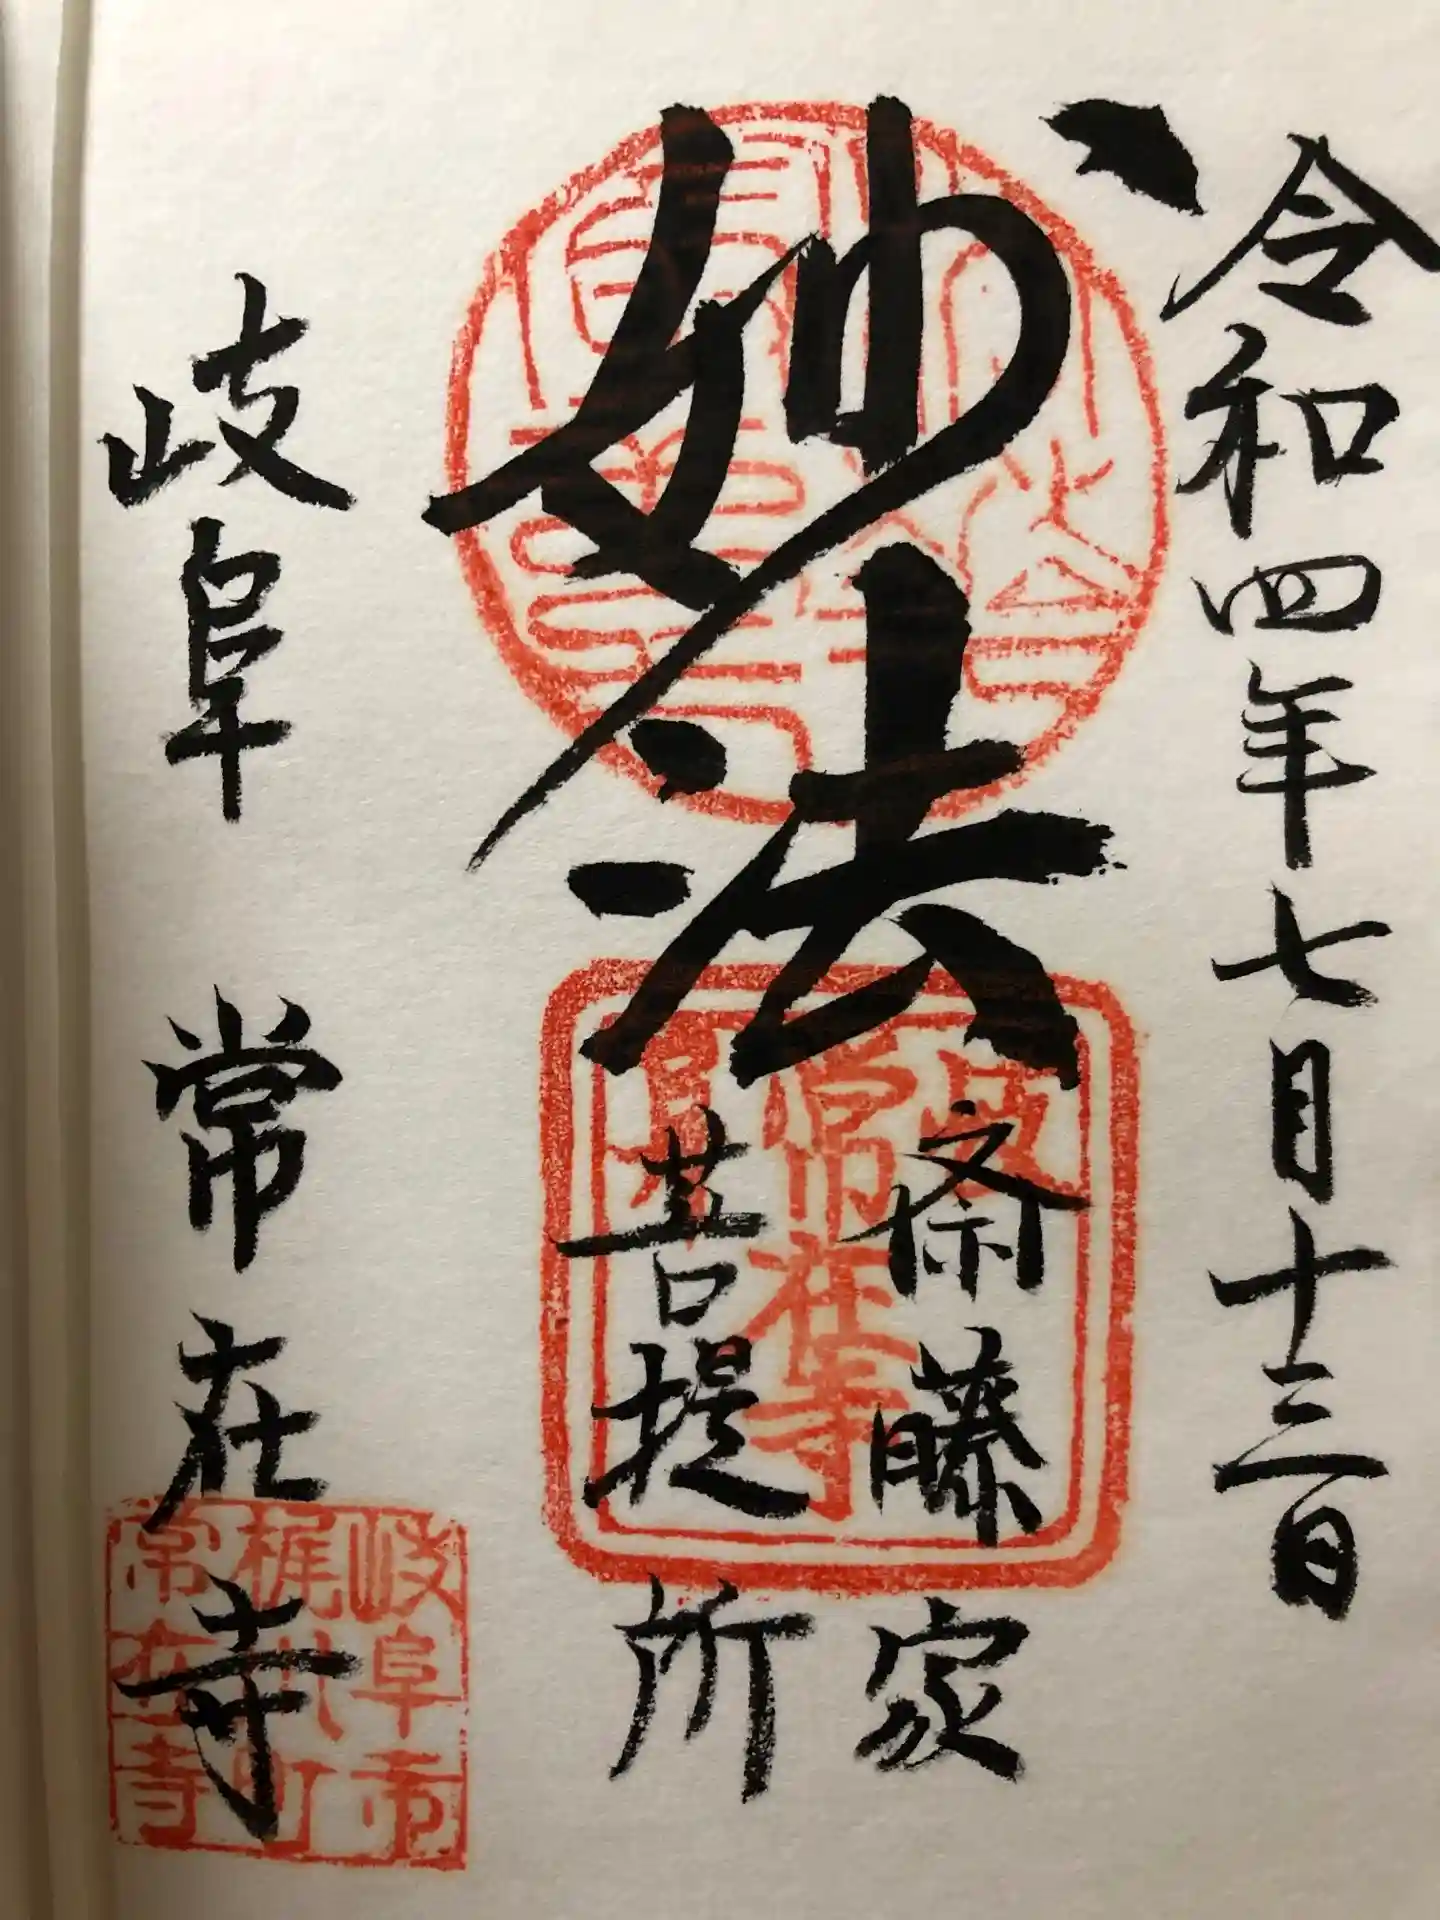 令和四年七月十三日
妙法
斎藤家
菩提所
岐阜 常在寺
常在寺
岐阜市
梶川町
常在寺